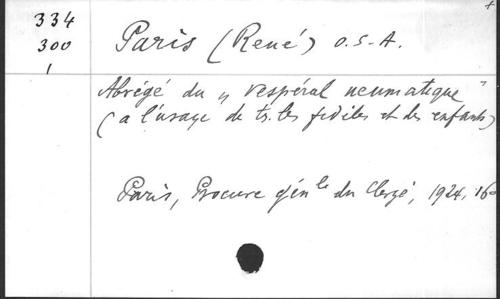 334
300
1
Paris (René) O.S.A.
Abrégé du „ Vespéral neumatique "
(a l'usage de ts. les fidèles et des enfants)
Paris, Procure gén le du Clergé, 1924, 16°